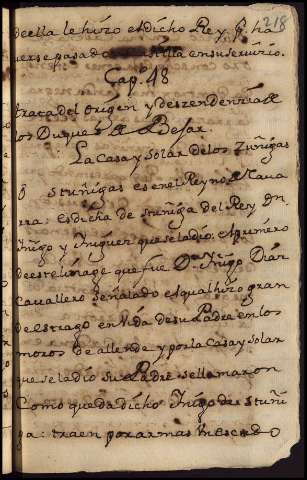 218
deella le hizo el dicho Rey, q. ha
verse pasado a Castilla en su servicio.
Cap.º 48
trata del origen y deszendenzia de
los Duques de Befar.
La Casa y Solar de los Zuñigas
ò Stuñigas es en el Reyno de Nava
rra: es dicha de Stuñiga del Rey Dn.
Iñigo y Iniguez que se la dio, el primero
de este linage que fue Dn. Iñigo Diaz
Cavallero señalado el qual hizo gran
de estrago en Vida de su Padre en los
moros de allende y por la Casa y Solar
que se la dio su Padre se llamaron
Como queda dicho Iñigo de Stuñi
ga: traen por armas un escudo